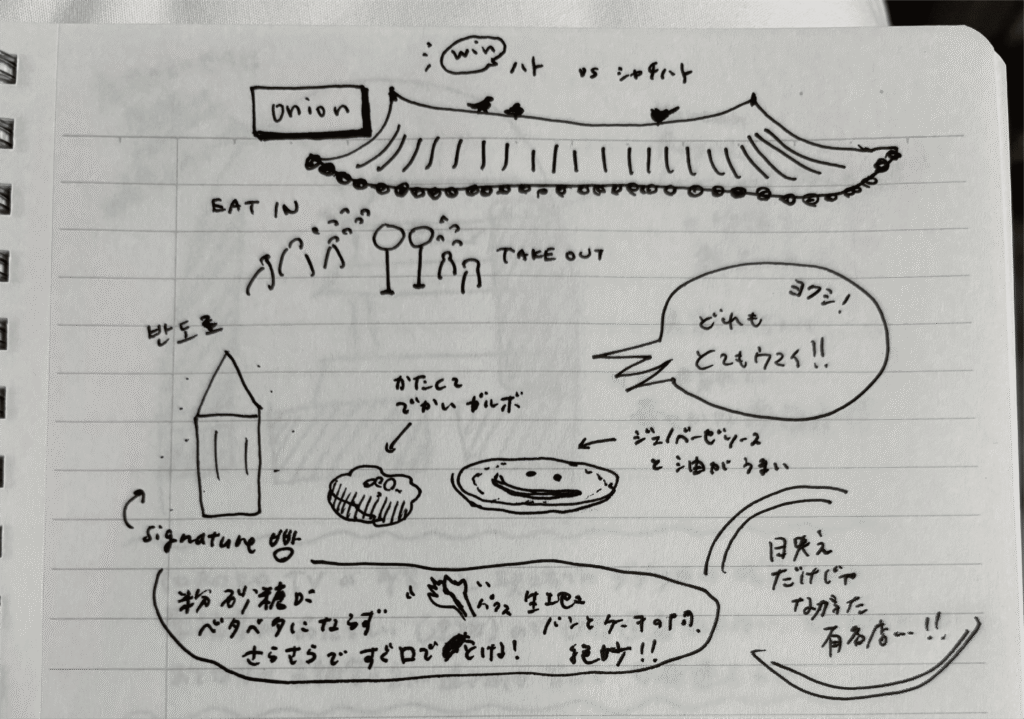 win
ハト vs シャチハト
onion
EAT IN
TAKE OUT
ヨクシ!
どれも
とてもウマイ!!
반도로
かたくて
でかいガルボ
ジェノベーゼソース
と油がうまい
signature 빵
粉砂糖が
ベタベタにならず
さらさらですぐ口でとける!
パクス 生地は
パンとケーキの間、
絶妙!!
目映え
だけじゃ
なかった
有名店…!!